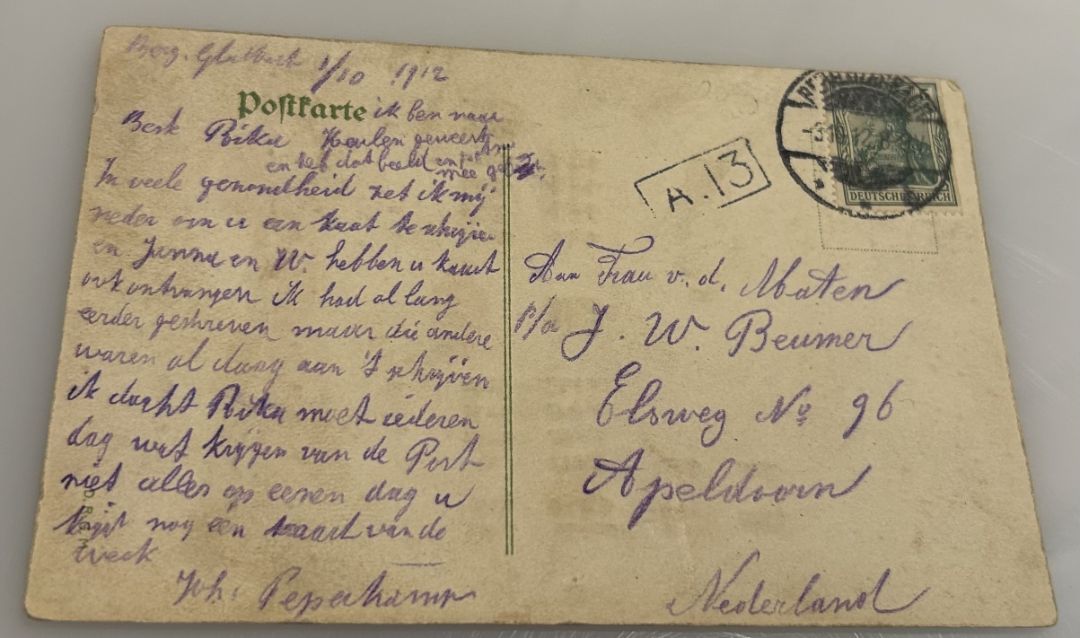 Berg. Gladbach 1/10 1912
Postkarte
ik ben naar
Best Rika Keulen geweest
en heb dat beeld en
mee
In veele gezondheid zet ik mij
neder om u een kaat te schrijve
en Janna en W. hebben u kaart
ook ontvangen ik had al lang
eerder geschreven maar die andere
waren al daag aan 't schrijven
ik dacht Rika moet iederen
dag wat krijgen van de Post
niet alles op eenen dag u
krijgt nog één kaart van de
week
Joh. Peperkamp
A. 13
DEUTSCHES REICH
Aan Frau v. d. Maten
p/a J. W. Beumer
Elsweg No 96
Apeldoorn
Nederland